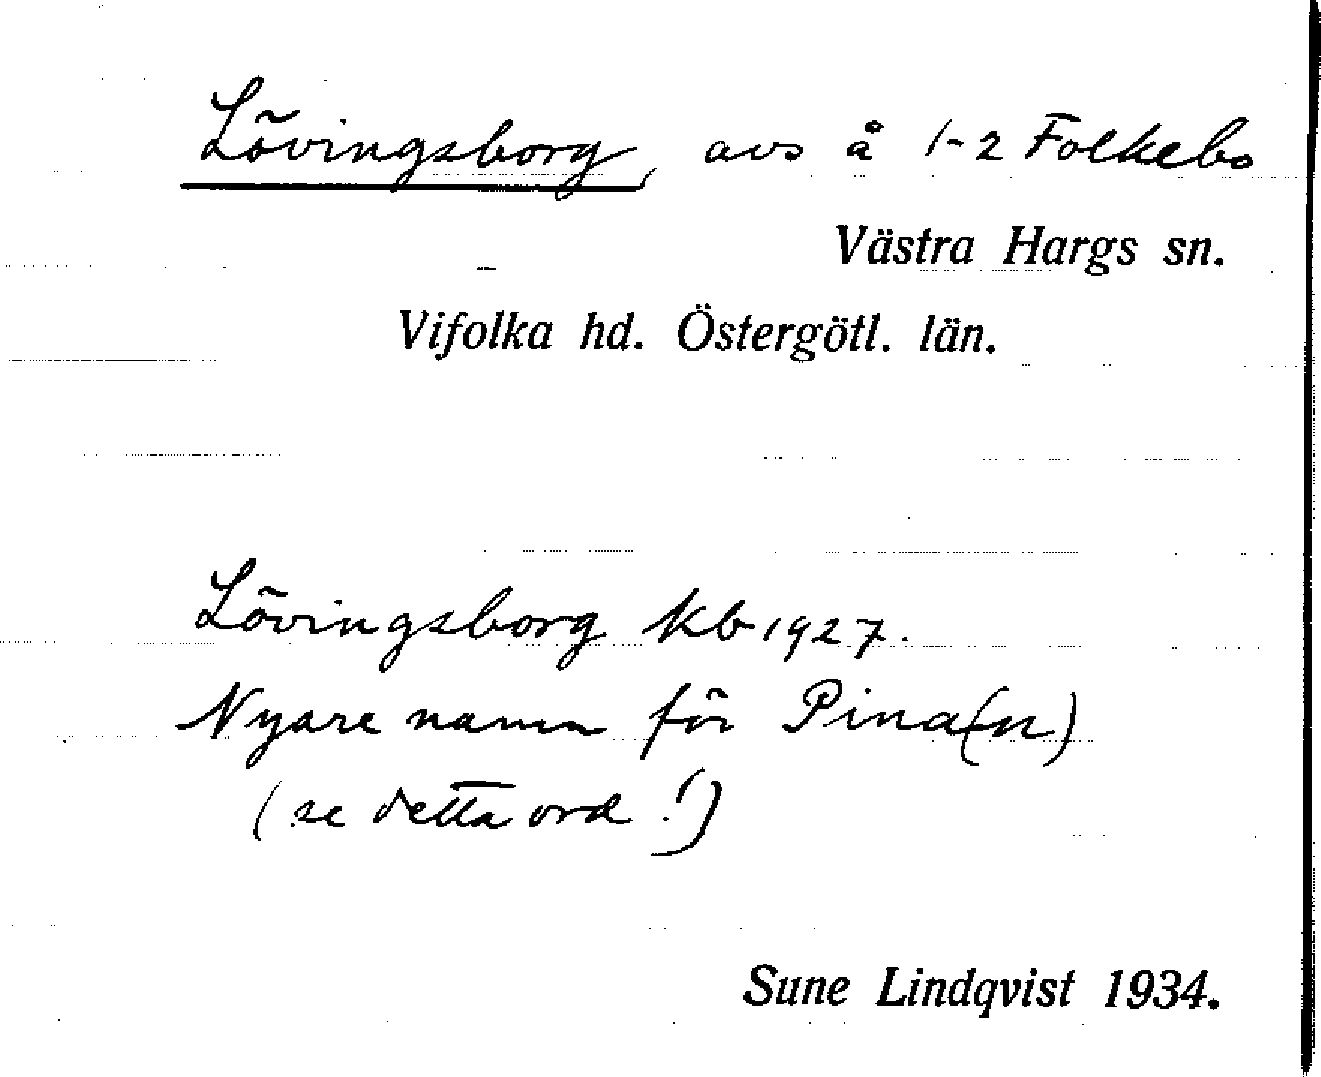 Lövingsborg, avs å 1-2 Folkebo
Västra Hargs sn.
Vifolka hd. Östergötl. län.
Lövingsborg kb 1927.
Nyare namn för Pina(n)
(se detta ord!)
Sune Lindqvist 1934.